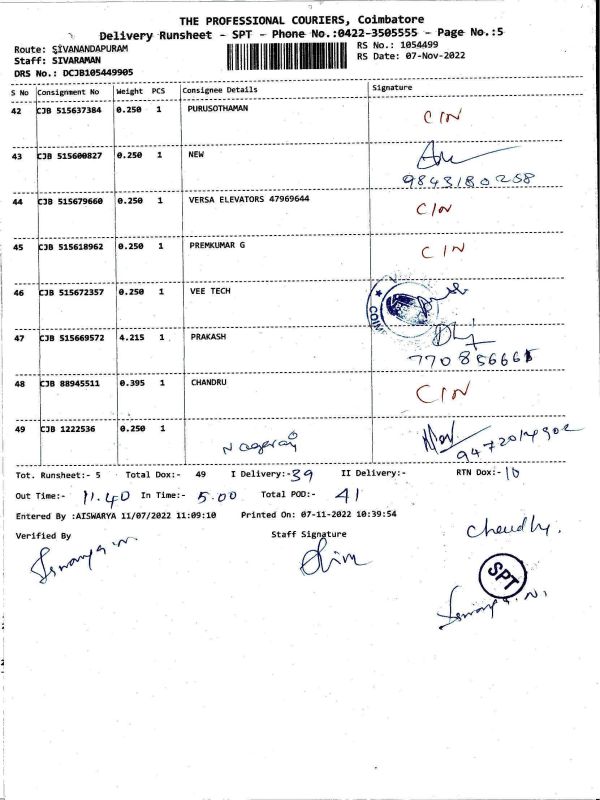 THE PROFESSIONAL COURIERS, Coimbatore
Delivery Runsheet - SPT - Phone No.:0422-3505555 - Page No.:5
Route: SIVANANDAPURAM RS No.: 1054499
Staff: SIVARAMAN RS Date: 07-Nov-2022
DRS No.: DCJB105449905
S No Consignment No Weight PCS Consignee Details Signature
42 CJB 515637384 0.250 1 PURUSOTHAMAN C/N
43 CJB 515600827 0.250 1 NEW
9843180258
44 CJB 515679660 0.250 1 VERSA ELEVATORS 47969644 C/N
45 CJB 515618962 0.250 1 PREMKUMAR G C/N
46 CJB 515672357 0.250 1 VEE TECH
COIM
47 CJB 515669572 4.215 1 PRAKASH
48 CJB 88945511 0.395 1 CHANDRU C/N
49 CJB 1222536 0.250 1
Nagaraj
Tot. Runsheet:- 5 Total Dox:- 49 I Delivery:- 39 II Delivery:- RTN Dox:- 10
Out Time:- 11.40 In Time:- 5.00 Total POD:- 41
Entered By :AISWARYA 11/07/2022 11:09:10 Printed On: 07-11-2022 10:39:54
Verified By Staff Signature
SPT